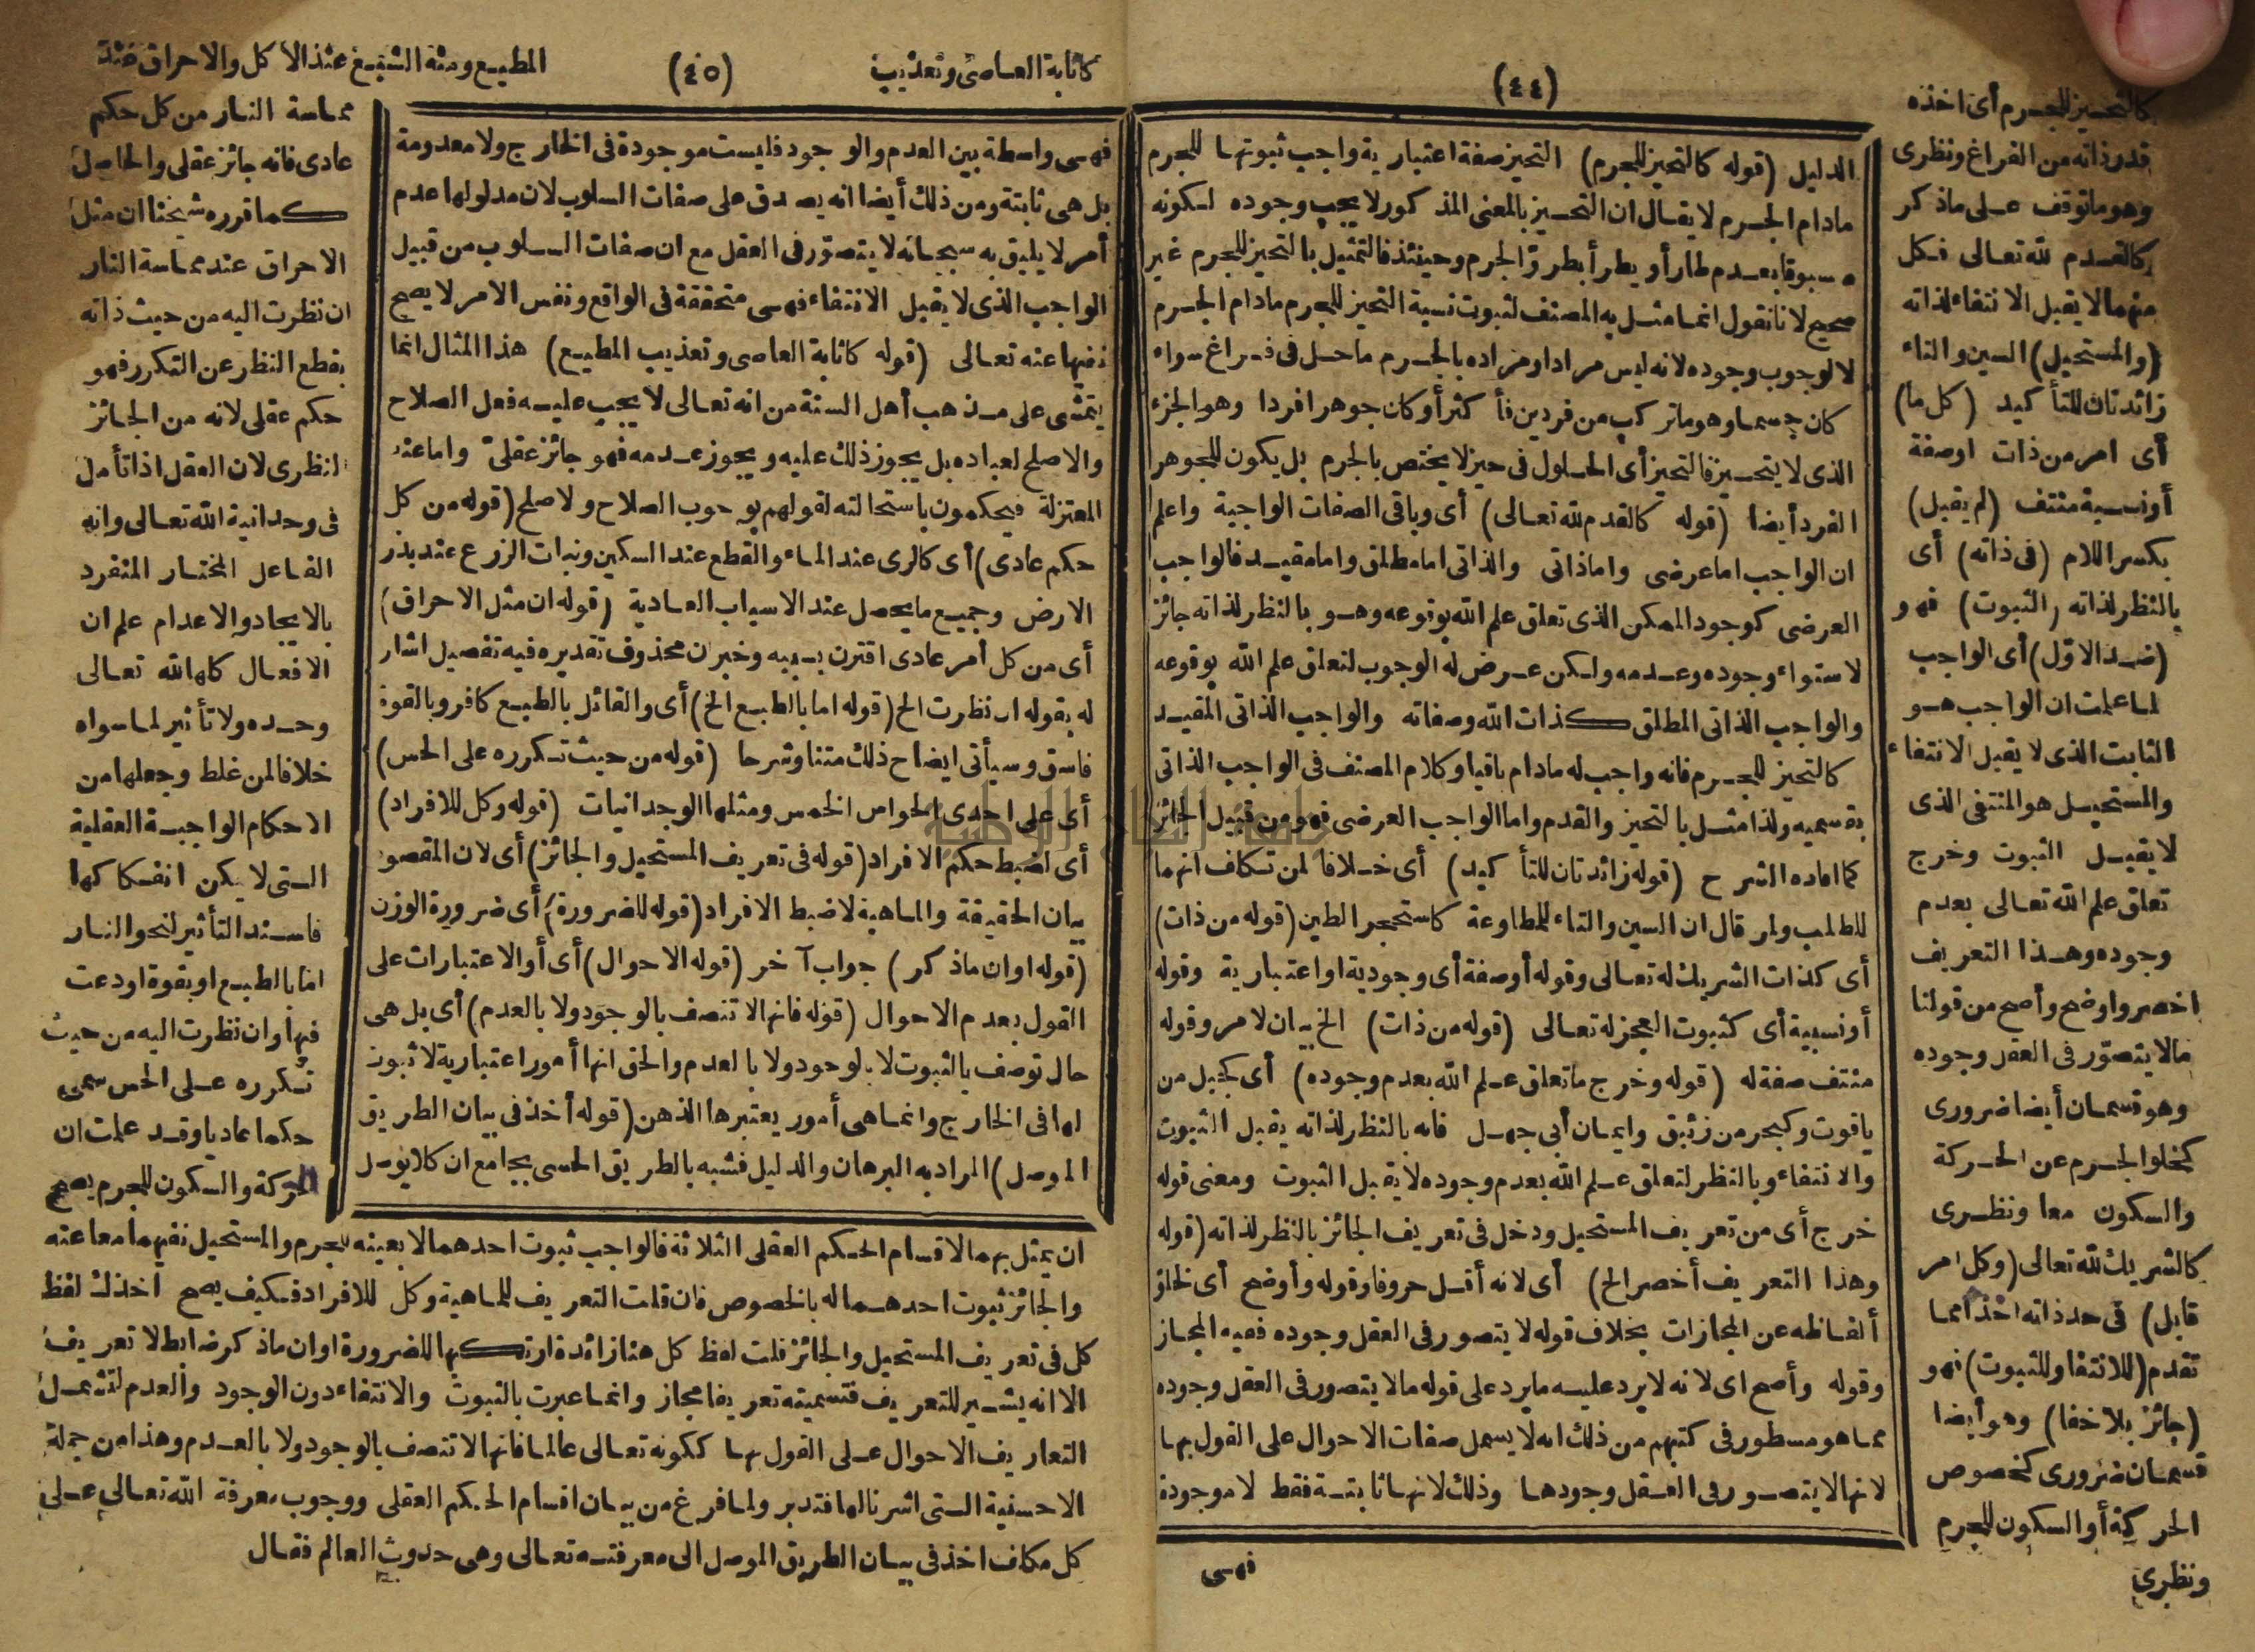 (٤٤)
كالتحيز للجرم أى اخذه
قدر ذاته من الفراغ ونظرى
وهو ما توقف على ما ذكر
كالقدم لله تعالى فكل
منهما لا يقبل الانتفاء لذاته
(والمستحيل) السين والتاء
زائدتان للتأكيد (كل ما)
أى امر من ذات اوصفة
أو نسبة منتف (لم يقبل)
بكسر اللام (فى ذاته) أى
بالنظر لذاته (الثبوت) فهو
(ضد الاوّل) أى الواجب
لما علمت ان الواجب هو
الثابت الذى لا يقبل الانتفاء
والمستحيل هو المنتفى الذى
لا يقبل الثبوت وخرج
تعلق علم الله تعالى بعدم
وجوده وهذا التعريف
اخصر واوضح وأصح من قولنا
مالا يتصوّر فى العقل وجوده
وهو قسمان أيضا ضرورى
كخلو الجرم عن الحركة
والسكون معا ونظرى
كالشريك لله تعالى (وكل امر
قابل) فى حد ذاته اخذا مما
تقدم (للانتفا وللثبوت) فهو
(جائز بلا خفا) وهو أيضا
قسمان ضرورى كخصوص
الحركة أو السكون للجرم
ونظرى
الدليل (قوله كالتحيز للجرم) التحيز صفة اعتبارية واجب ثبوتها للجرم
مادام الجرم لا يقال ان التحيز بالمعنى المذكور لا يجب وجوده لكونه
مسبوقا بعدم طار أو يطرأ بطروّ الجرم وحينئذ فالتمثيل بالتحيز للجرم غير
صحيح لانا نقول انما مثل به المصنف لثبوت نسبة التحيز للجرم مادام الجرم
لا لوجوب وجوده لانه ليس مرادا ومراده بالجرم ما حل فى فراغ سواء
كان جسما وهو ما تركب من فردين فأكثر أو كان جوهرا فردا وهو الجزء
الذى لا يتحيز فالتحيز أى الحلول فى حيز لا يختص بالجرم بل يكون للجوهر
الفرد أيضا (قوله كالقدم لله تعالى) أى وباقى الصفات الواجبة واعلم
ان الواجب اما عرضى واما ذاتى والذاتى اما مطلق واما مقيد فالواجب
العرضى كوجود الممكن الذى تعلق علم الله بوقوعه وهو بالنظر لذاته جائز
لاستواء وجوده وعدمه ولكن عرض له الوجوب لتعلق علم الله بوقوعه
والواجب الذاتى المطلق كذات الله وصفاته والواجب الذاتى المقيد
كالتحيز للجرم فانه واجب له مادام باقيا وكلام المصنف فى الواجب الذاتى
بقسميه ولذا مثل بالتحيز والقدم واما الواجب العرضى فهو من قبيل الجائز
كما افاده الشرح (قوله زائدتان للتأكيد) أى خلافا لمن تكلف انهما
للطلب ولمن قال ان السين والتاء للمطاوعة كاستحجر الطين (قوله من ذات)
أى كذات الشريك له تعالى وقوله أوصفة أى وجودية او اعتبارية وقوله
أو نسبية أى كثبوت العجز له تعالى (قوله من ذات) الخ بيان لامر وقوله
منتف صفة له (قوله وخرج ما تعلق علم الله بعدم وجوده) أى كجبل من
ياقوت وكبحر من زئبق وايمان أبى جهل فانه بالنظر لذاته يقبل الثبوت
والانتفاء وبالنظر لتعلق علم الله بعدم وجوده لا يقبل الثبوت ومعنى قوله
خرج أى من تعريف المستحيل ودخل فى تعريف الجائز بالنظر لذاته (قوله
وهذا التعريف أخصر الخ) أى لانه أقل حروفا وقوله وأوضح أى لخلو
ألفاظه عن المجازات بخلاف قوله لا يتصور فى العقل وجوده ففيه المجاز
وقوله وأصح اى لانه لا يرد عليه ما يرد على قوله مالا يتصور فى العقل وجوده
مما هو مسطور فى كتبهم من ذلك انه لا يشمل صفات الاحوال على القول بها
لانها لا يتصور فى العقل وجودها وذلك لانها ثابتة فقط لا موجودة
فهى
كاثابة العاصى وتعذيب (٤٥) المطيع ومثله الشبع عند الاكل والاحراق عند
فهى واسطة بين العدم والوجود فليست موجودة فى الخارج ولا معدومة
بل هى ثابتة ومن ذلك أيضا انه يصدق على صفات السلوب لان مدلولها عدم
أمر لا يليق به سبحانه لا يتصوّر فى العقل مع ان صفات السلوب من قبيل
الواجب الذى لا يقبل الانتفاء فهى متحققة فى الواقع ونفس الامر لا يصح
نفيها عنه تعالى (قوله كاثابة العاصى وتعذيب المطيع) هذا المثال انما
يتمشى على مذهب أهل السنة من انه تعالى لا يجب عليه فعل الصلاح
والاصلح لعباده بل يجوز ذلك عليه ويجوز عدمه فهو جائز عقلىّ واما عند
المعتزلة فيحكمون باستحالته لقولهم بوجوب الصلاح ولاصلح (قوله من كل
حكم عادى) أى كالرى عند الماء والقطع عند السكين ونبات الزرع عند بذر
الارض وجميع ما يحصل عند الاسباب العادية (قوله ان مثل الاحراق)
أى من كل أمر عادى اقترن بسببه وخبر ان محذوف تقديره فيه تفصيل اشار
له بقوله ان نظرت الخ (قوله اما بالطبع الخ) أى والقائل بالطبع كافر وبالقوة
فاسق وسيأتى ايضاح ذلك متنا وشرحا (قوله من حيث تكرره على الحس)
أى على احدى الحواس الخمس ومثلها الوجدانيات (قوله وكل للافراد)
أى لضبط حكم الافراد (قوله فى تعريف المستحيل والجائز) أى لان المقصود
بيان الحقيقة والماهية لا ضبط الافراد (قوله للضرورة) أى ضرورة الوزن
(قوله اوان ما ذكر) جواب آخر (قوله الاحوال) أى أو الاعتبارات على
القول بعدم الاحوال (قوله فانها لا تتصف بالوجود ولا بالعدم) أى بل هى
حال توصف بالثبوت لا بالوجود ولا بالعدم والحق انها أمور اعتبارية لا ثبوت
لها فى الخارج وانما هى أمور يعتبرها الذهن (قوله أخذ فى بيان الطريق
الموصل) المراد به البرهان والدليل فشبه بالطريق الحسى بجامع ان كلا يوصل
مماسة النار من كل حكم
عادى فانه جائز عقلى والحاصل
كما قرره شيخنا ان مثل
الاحراق عند مماسة النار
ان نظرت اليه من حيث ذاته
بقطع النظر عن التكرر فهو
حكم عقلى لانه من الجائز
النظرى لان العقل اذا تأمل
فى وحدانية الله تعالى وانه
الفاعل المختار المنفرد
بالايجاد والاعدام علم ان
الافعال كلها لله تعالى
وحده ولا تأثير لما سواه
خلافا لمن غلط وجعلها من
الاحكام الواجبة العقلية
التى لا يمكن انفكاكها
فاسند التأثير لنحو النار
اما بالطبع او بقوة اودعت
فيها وان نظرت اليه من حيث
تكرره على الحس سمى
حكما عاديا وقد علمت ان
الحركة والسكون للجرم يصح
ان يمثل بهما لاقسام الحكم العقلى الثلاثة فالواجب ثبوت احدهما لا بعينه للجرم والمستحيل نفيهما معا عنه
والجائز ثبوت احدهما له بالخصوص فان قلت التعريف للماهية وكل للافراد فكيف يصح اخذك لفظ
كل فى تعريف المستحيل والجائز قلت لفظ كل هنا زائدة ارتكبها للضرورة او ان ما ذكر ضابط لا تعريف
الا انه يشير للتعريف فتسميته تعريفا مجاز وانما عبرت بالثبوت والانتفاء دون الوجود والعدم لتشمل
التعاريف الاحوال على القول بها ككونه تعالى عالما فانها لا تتصف بالوجود ولا بالعدم وهذا من جملة
الاحسنية التى اشرنا لها فتدبر ولما فرغ من بيان اقسام الحكم العقلى ووجوب معرفة الله تعالى على
كل مكلف اخذ فى بيان الطريق الموصل الى معرفته تعالى وهى حدوث العالم فقال